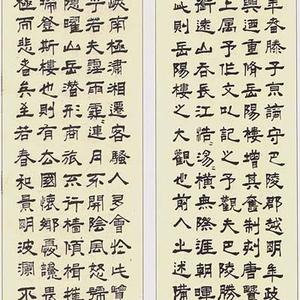 年春滕子京謫守巴陵郡越明年政
興迺重脩岳陽樓增其舊制刻唐賢
上屬予作文以記之予觀夫巴陵勝
銜遠山吞長江浩〻湯〻橫無際涯朝暉
此則岳陽樓之大觀也前人之述備
峽南極瀟湘遷客騷人多會於此覽
乎若夫霪雨霏〻連月不開陰風怒號
隱曜山岳潛形商旅不行檣傾楫摧
啼登斯樓也則有去國懷鄉憂讒畏
極而悲者矣至若春和景明波瀾不